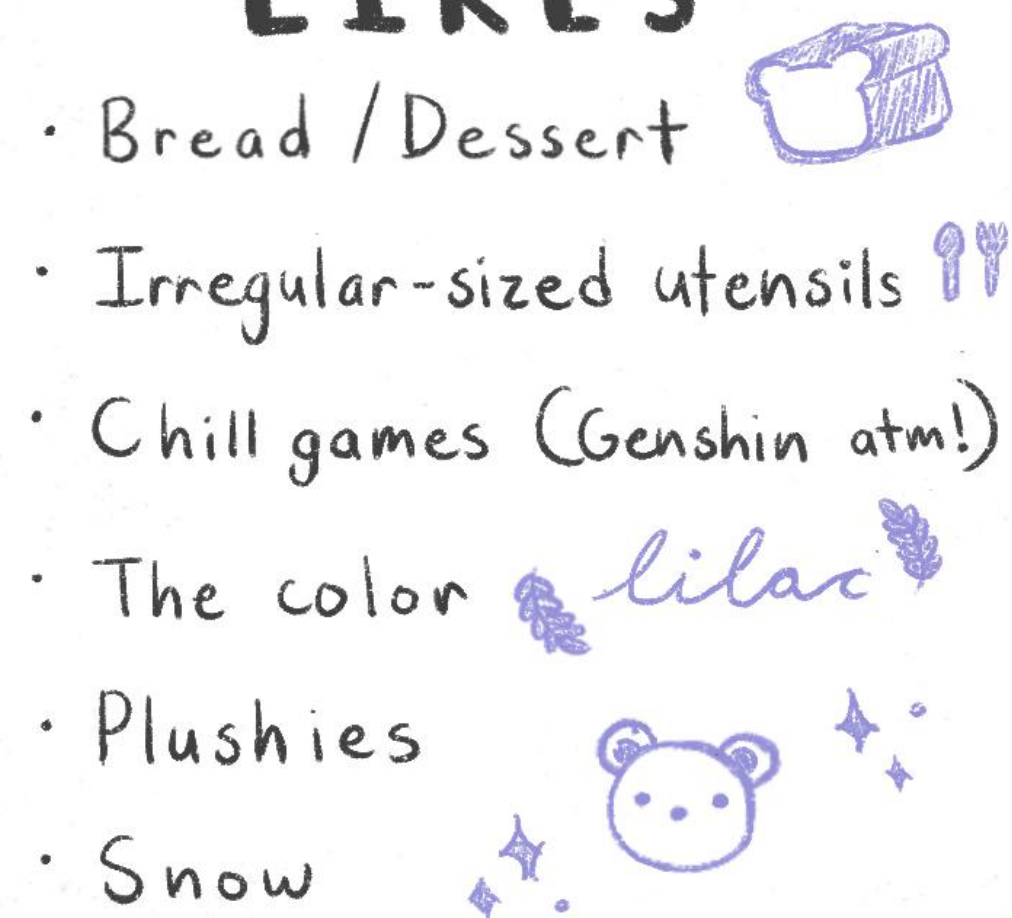 LIKES
· Bread / Dessert
· Irregular-sized utensils
· Chill games (Genshin atm!)
· The color lilac
· Plushies
· Snow